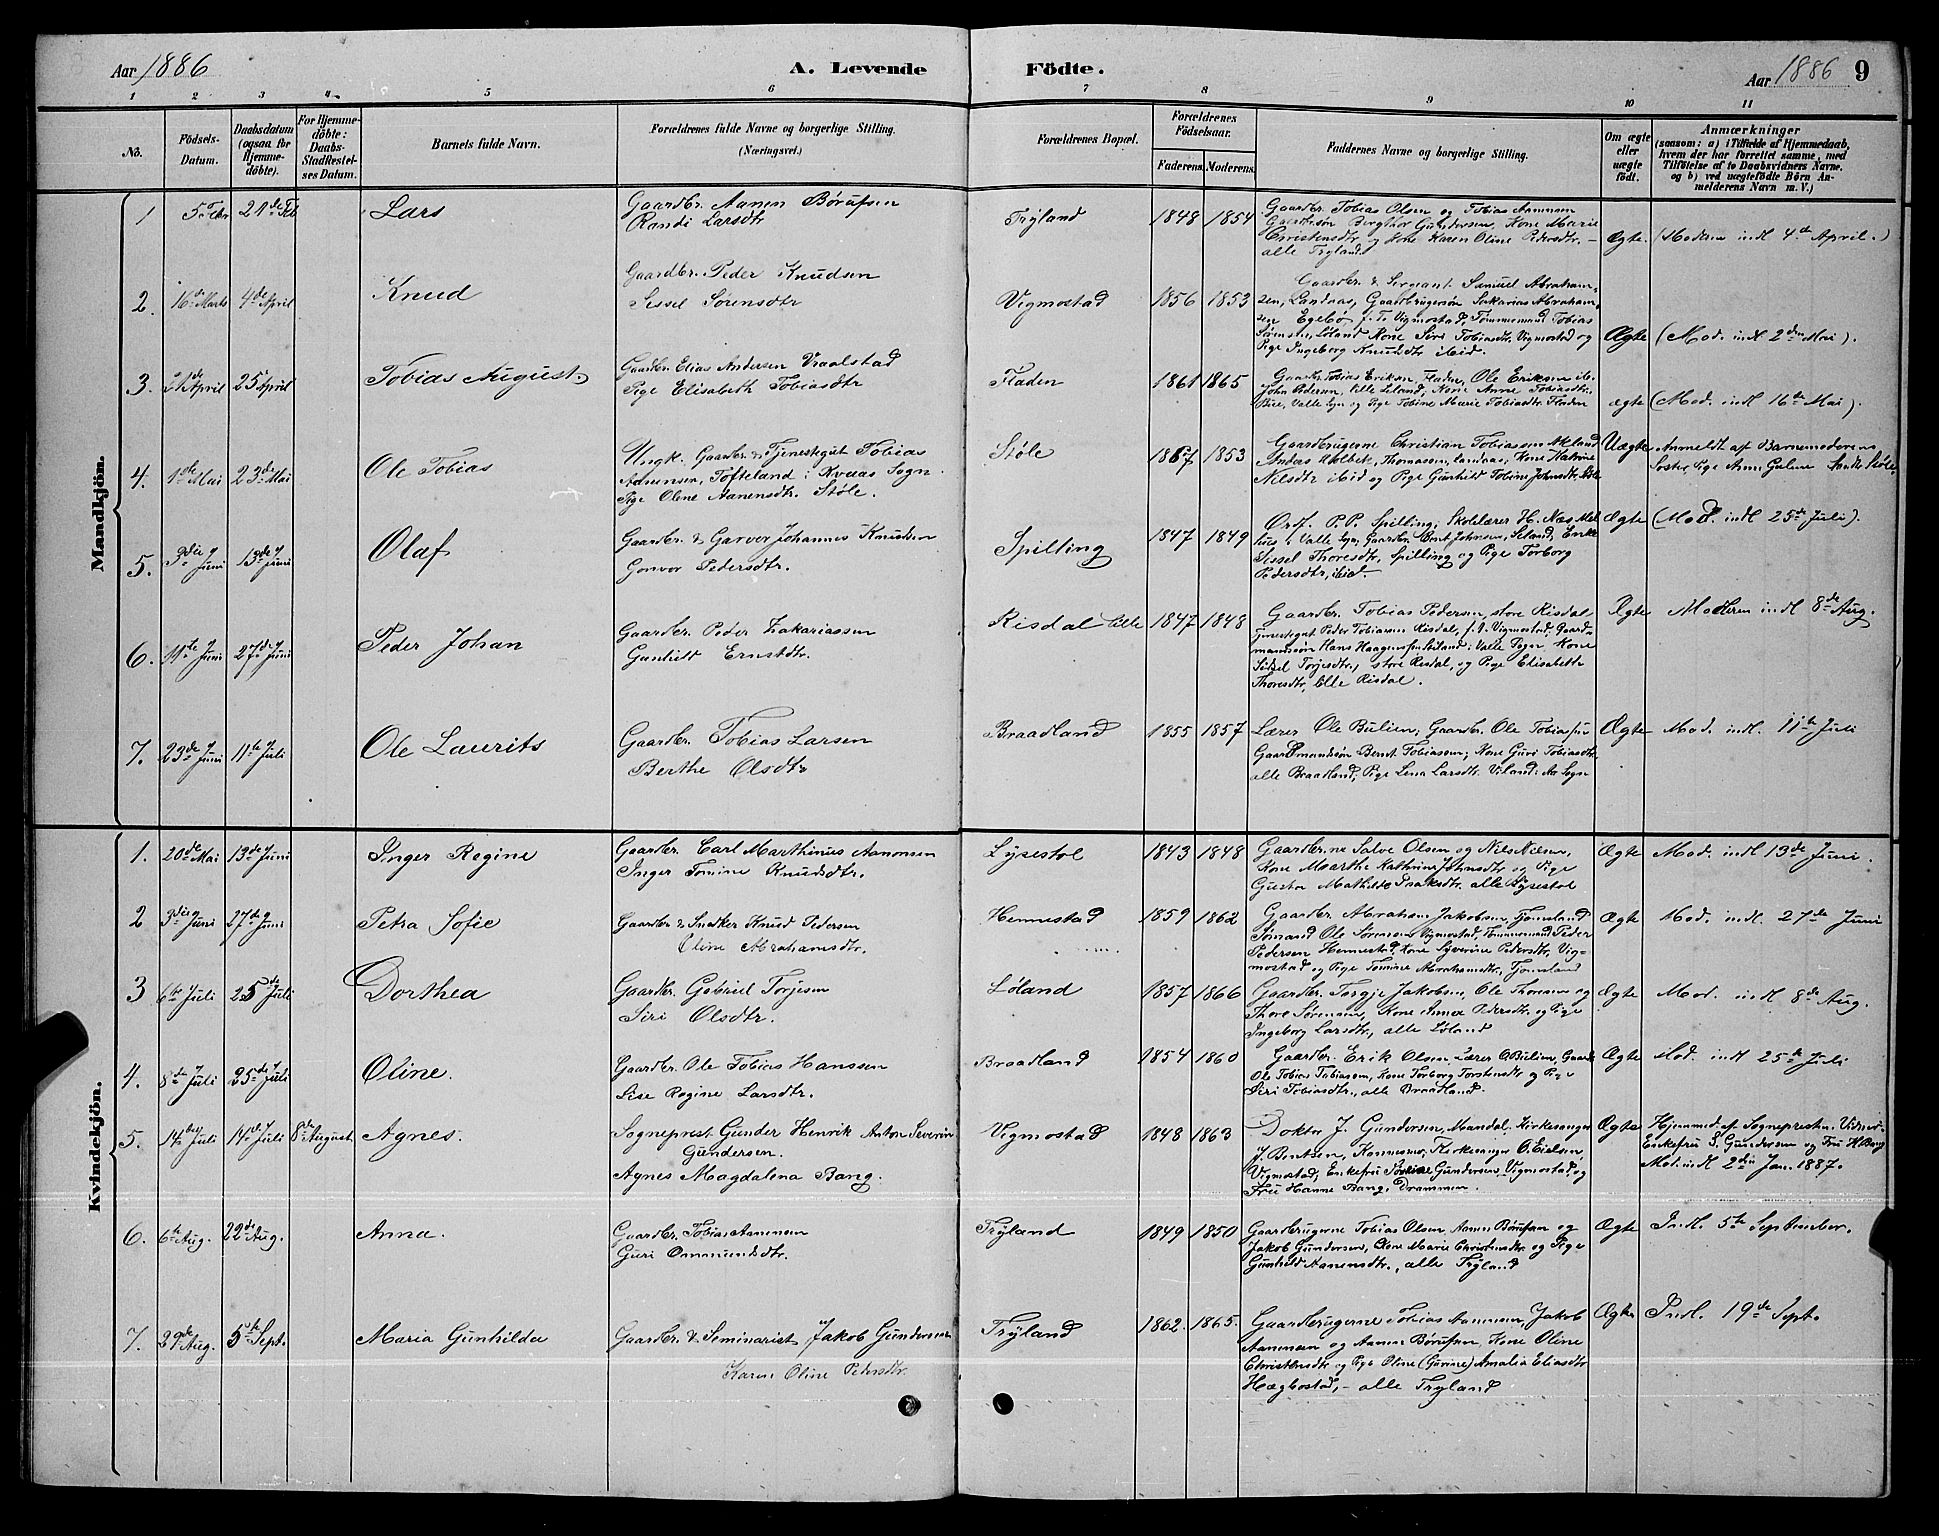 Aar 1886 A. Levende Födte. Aar 1886 9
1 2 3 4 5 6 7 8 9 10 11
No. Födsels-Datum. Daabsdatum (ogsaa for Hjemmedöbte). For Hjemmedöbte: Daabs-Stadfestelses Datum. Barnets fulde Navn. Forældrenes fulde Navne og borgerlige Stilling. (Næringsvei.) Forældrenes Bopæl. Forældrenes Födselsaar. Faderens. Moderens. Faddernes Navne og borgerlige Stilling. Om ægte eller uægte födt. Anmærkninger (saasom: a) i Tilfælde af Hjemmedaab, hvem der har forrettet samme, med Tilföielse af to Daabsvidners Navne, og b) ved uægtefödte Börn Anmelderens Navn m. V.)
Mandkjön.
1 5 Febr 21de Feb Lars Gaardbr. Aanen Börufsen
Randi Larsdtr Tryland 1848 1854 Gaardbr. Tobias Olsen og Tobias Aanensen
Gaardbrsøn Bergthor Gundersen, Kone Marie
Christensdtr og Kone Karen Oline Pedersdtr. -
alle Tryland Ægte. (Moderen indl 4de April.)
2. 16de Marts 4de April Knud Gaardbr. Peder Knudsen
Sissel Sørensdtr Vigmostad 1856 1853 Gaardbr. & Sergeant Samuel Abraham-
sen, Landaas, Gaardbrugersøn Sakarias Abraham-
sen Egebø, f. T. Vigmostad, Tømmermand Tobias
Sørensen, Löland Kone Siri Tobiasdtr, Vigmostad og
Pige Ingeborg Knudsdtr ibid. Ægte (Mod. indl 2den Mai).
3. 21de April 25 April Tobias August. Gaardbr. Elias Andersen Vraalstad
Pige Elisabeth Tobiasdtr Fladen 1861 1865 Gaardbr. Tobias Eriksen, Fladen, Ole Eriksen ib.
John Pedersen, lille Leland, Kone Anne Tobiasdtr.
Bue, Valle Sgn og Pige Tobine Marie Tobiasdtr. Fladen ægte (Mod. indl 16de Mai).
4. 1ste Mai 23de Mai Ole Tobias Ungk. Gaardbr. & Tjenestegut Tobias
Adnensen, Tofteland i Kvaas Sogn.
Pige Oline Aanensdtr. Støle. Støle 1867 1853 Gaardbrugerne Christian Tobiassen Akland
Andeas Holbek, Thomassen, Landaas, Kone Katrine
Nilsdtr ibid og Pige Gunhild Tobine Johnsdtr, Støle Uægte Anmeldt af Barnemoderens
Søster, Pige Anne Aanensdtr Støle.
5. 3die Juni 13de Juni Olaf Gaardbr. & Garver Johannes Knudsen
Gonvor Pedersdtr. Spilling 1847 1849 Ordf. P. P. Spilling, Skolelærer H. Næs Mel-
hus, Valle Sgn, Gaardbr. Bent Johnsen, Leland, Enke
Sissel Thoresdtr, Spilling og Pige Torborg
Pedersdtr, ibid. Ægte (Mod. indl 25de Juli).
6. 11te Juni 27de Juni Peder Johan Gaardbr. Peder Zakariassen
Gunhild Ernstdtr. Risdal lille 1847 1848 Gaardbr. Tobias Pedersen, store Risdal
Tjenestegut Peder Tobiassen Risdal, f. T. Vigmostad, Gaard-
mandssøn Hans Haagensen Leland i Valle Sogn Kone
Sissel Torjesdtr, store Risdal, og Pige Elisabeth
Thoresdtr, lille Risdal. Ægte Moderen indl 8de Aug.
7. 23de Juni 11te Juli Ole Laurits Gaardbr. Tobias Larsen
Berthe Olsdtr Braadland 1855 1857 Lærer Ole Bulien; Gaardbr. Ole Tobiassen
Gaardmandssøn Bernt Tobiassen; Kone Guri Tobiasdtr
alle Braadland, Pige Lena Larsdtr. Viland i Aa Sogn Ægte Mod. indl. 11te Juli
Kvindekjön.
1. 20de Mai 13de Juni Inger Regine Gaardbr. Carl Marthinus Aanonsen
Inger Tomine Knudsdtr. Lysestøl 1843 1848 Gaardbr.ne Salve Olsen og Nils Nilsen,
Kone Marthe Kathrine Johnsdtr og Pige
Gusta Mathilde Isaksdtr. alle Lysestøl Ægte Mod. indl 13de Juni.
2 3die Juni 27de Juni Petra Sofie Gaardbr & Snedker Knud Pedersen
Oline Abrahamsdtr. Hennestad 1859 1862 Gaardbr. Abraham Jakobsen, Tjomsland
Sømand Ole Sørensen Vigmostad, Tømmermand Peder
Pedersen Hennestad, Kone Syverine Pedersdtr, Vig-
mostad og Pige Tomine Abrahamsdtr, Tjomsland Ægte Mod. indl. 27de Juni
3 6te Juli 25de Juli Dorthea Gaardbr. Gabriel Torjesen
Siri Olsdtr. Løland 1857 1866 Gaardbr. Torgje Jakobsen, Ole Thoresen og
Thore Sørensen, Kone Anna Pedersdtr. og Pige
Ingeborg Larsdtr, alle Løland Ægte Mod. indl 8de Aug.
4. 8de Juli 25de Juli Oline. Gaardbr. Ole Tobias Hanssen
Lise Regine Larsdtr. Braadland 1854 1860 Gaardbr. Erik Olsen Lærer O Bulien, Gaardb
Ole Tobias Tobiassen, Kone Torborg Torstensdtr og Pige
Siri Tobiasdtr., alle Braadland. Ægte Mod. indl 25de Juli
5. 14de Juli 14de Juli 8de August Agnes. Sogneprest Gunder Henrik Anton Severin
Gundersen.
Agnes Magdalena Bang. Vigmostad 1848 1863 Doktor J. Gundersen, Mandal, Kirkesanger
J. Bentsen, Konnesmo, Kirkesanger O. Eielsen,
Vigmostad, Enkefru Gundersen, Vigmostad, og
Fru Hanne Bang, Drammen. Ægte Hjemmed. af Sognepresten. Vidner:
Enkefru S. Gundersen og Fru H Bang
Mod. indl 2den Jan. 1887.
6. 6te Aug. 22de Aug. Anna. Gaardbr. Tobias Aanensen
Guri Ommundsdtr. Tryland 1849 1850 Gaardbrugerne Tobias Olsen, Aanen Börufsen og
Jakob Gundersen, Kone Marie Christensdtr og Pige
Gunhild Aanensdtr., alle Tryland Ægte Indl. 5te September.
7. 29de Aug. 5te Sept. Maria Gunhilda Gaardbr. & Seminarist Jakob Gundersen
Karen Oline Pedersdtr. Tryland 1862. 1865. Gaardbrugerne Tobias Aanensen, Jakob
Aanensen og Aanen Börufsen, Kone Oline
Christensdtr og Pige Oline (Gurine) Amalia Eliasdtr
Hægbostad, - alle Tryland Ægte Indl. 19de Sept.